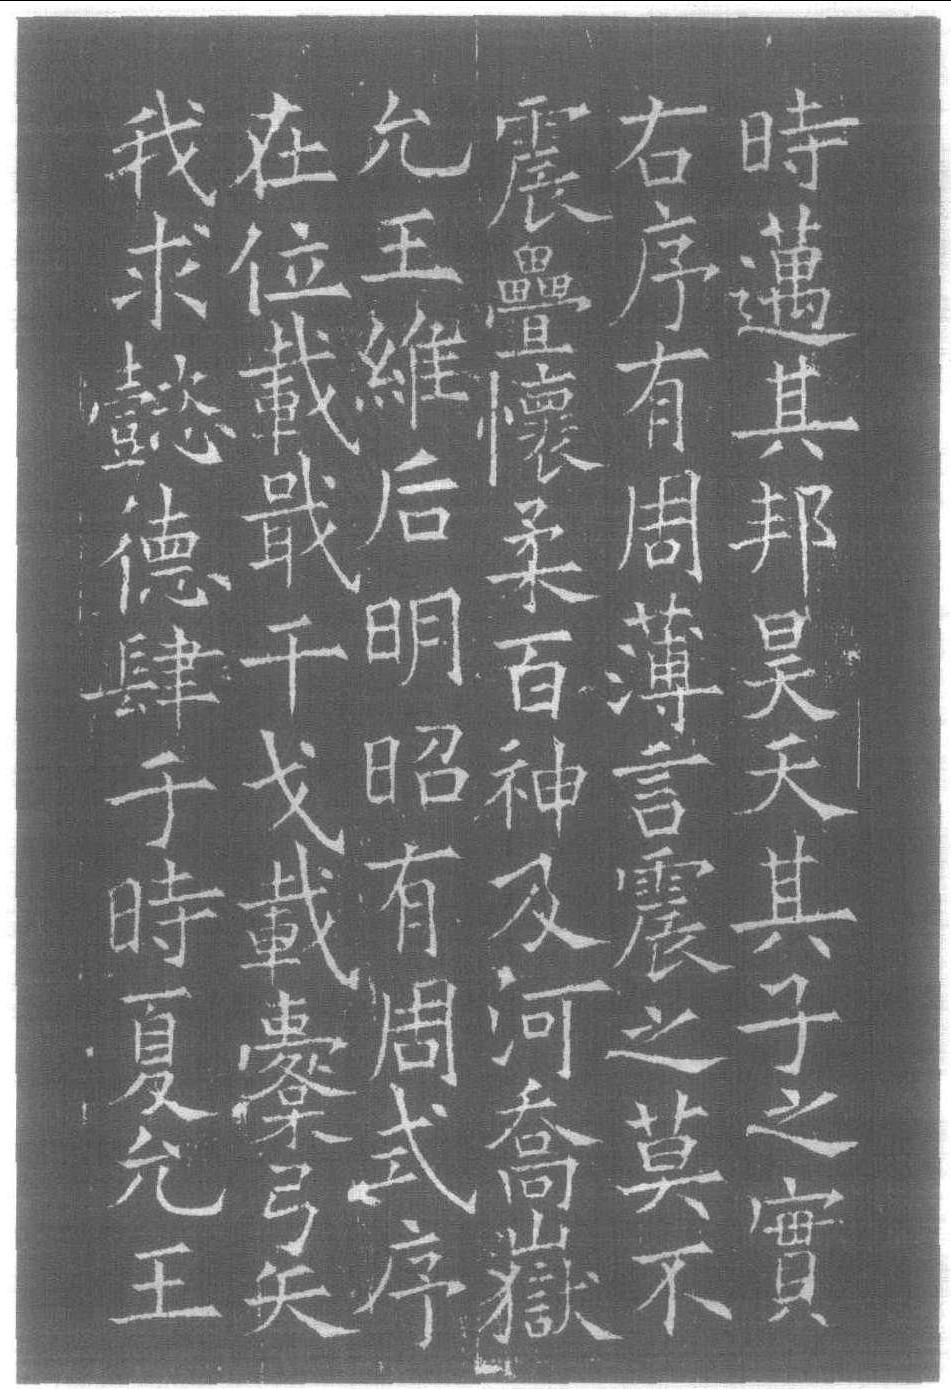 時邁其邦昊天其子之實
右序有周薄言震之莫不
震疊懷柔百神及河喬嶽
允王維后明昭有周式序
在位載戢干戈載櫜弓矢
我求懿德肆于時夏允王